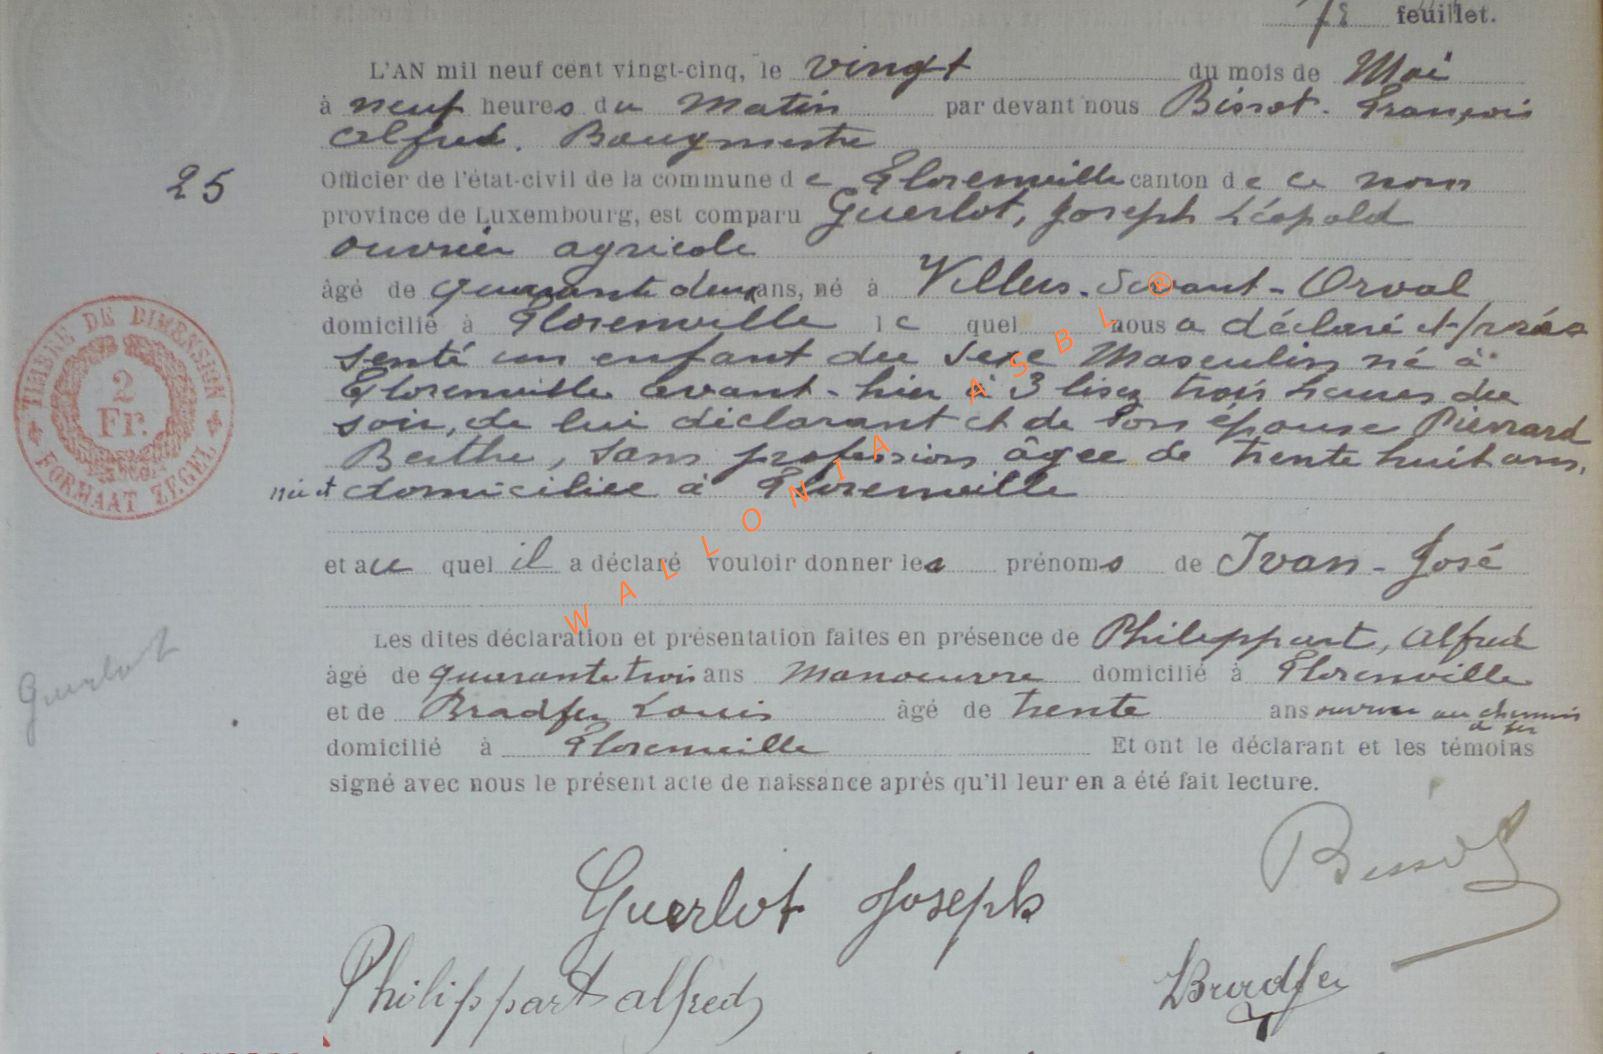 78 feuillet.
L'AN mil neuf cent vingt-cinq, le vingt du mois de Mai
à neuf heures du Matin par devant nous Bissot - François
Alfred. Bourgmestre
25
Officier de l'état-civil de la commune de Florenville canton de ce nom
province de Luxembourg, est comparu Guerlot, Joseph Léopold
ouvrier agricole
âgé de quarante deux ans, né à Villers-devant-Orval
domicilié à Florenville le quel nous a déclaré et pré
senté un enfant du sexe Masculin né à
Florenville avant-hier à 3 lisez trois heures du
soir, de lui déclarant et de son épouse Pierrard
Berthe, sans profession âgée de trente huit ans,
née et domiciliée à Florenville
et au quel il a déclaré vouloir donner les prénoms de Ivan - José
Les dites déclaration et présentation faites en présence de Philippart, Alfred
âgé de quarante trois ans Manoeuvre domicilié à Florenville
et de Bradfer Louis âgé de trente ans ouvrier au chemin
de fer
domicilié à Florenville Et ont le déclarant et les témoins
signé avec nous le présent acte de naissance après qu'il leur en a été fait lecture.
Guerlot
TIMBRE DE DIMENSION
2
Fr.
FORMAAT ZEGEL
WALLONIA ASBL ®
Bissot
Guerlot Joseph
Philippart alfred
LBradfer